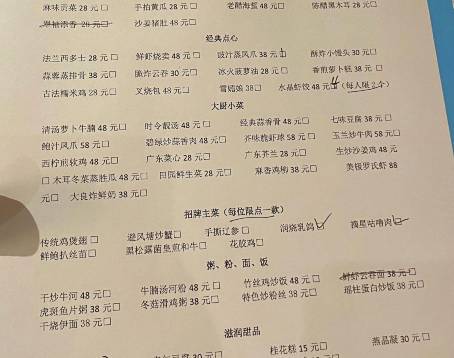 麻味贡菜 28 元□ 手拍黄瓜 28 元□ 老醋海蜇 48 元□ 陈醋黑木耳 28 元□
沙姜猪肚 48 元□
经典点心
法兰西多士 28 元□ 鲜虾烧卖 48 元□ 豉汁蒸凤爪 38 元□ 酥炸小馒头 30 元□
蒜蓉蒸排骨 38 元□ 脆炸云吞 30 元□ 冰火菠萝油 28 元□ 香煎萝卜糕 38 元□
古法糯米鸡 28 元□ 叉烧包 48 元□ 雪媚娘 38□ 水晶虾饺 48 元 (每人限 2 个)
大厨小菜
清汤萝卜牛腩 48 元□ 时令靓汤 48 元□ 经典蒜香骨 48 元□ 七味豆腐 38 元□
鲍汁凤爪 58 元□ 碧绿炒蒜香肉 48 元□ 芥味脆虾球 58 元□ 玉兰炒牛肉 58 元□
西柠煎软鸡 48 元□ 广东菜心 28 元□ 广东芥兰 28 元□ 生炒沙姜鸡 48 元
□ 木耳冬菜蒸胜瓜 48 元□ 田园鲜生菜 28 元□ 麻香鸡柳 38 元□ 美极罗氏虾 88
元□ 大良炸鲜奶 38 元□
招牌主菜（每位限点一款）
传统鸡煲翅□ 避风塘炒蟹□ 手撕辽参□ 润烧乳鸽□ 摘星咕噜肉□
鲜鲍扒丝苗□ 黑松露菌皇煎和牛□ 花胶鸡□
粥、粉、面、饭
干炒牛河 48 元□ 牛腩汤河粉 48 元□ 竹丝鸡炒饭 48 元□ 鲜虾云吞面 38 元□
虎斑鱼片粥 38 元□ 冬菇滑鸡粥 38 元□ 特色炒粉丝 38 元□ 瑶柱蛋白炒饭 38 元□
干烧伊面 38 元□
滋润甜品
30 元□ 桂花糕 15 元□ 燕品凝 30 元□